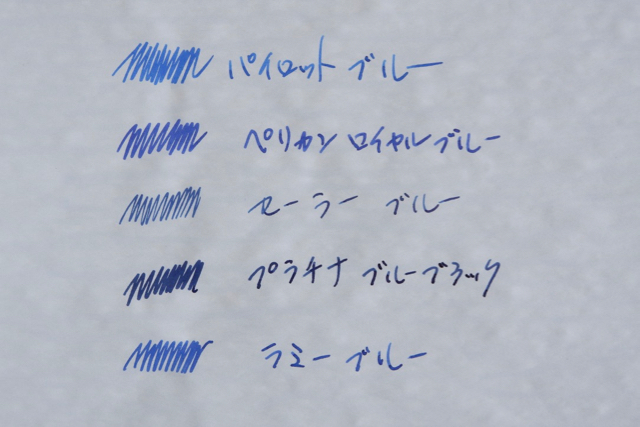 パイロット ブルー
ペリカン ロイヤルブルー
セーラー ブルー
プラチナ ブルーブラック
ラミー ブルー